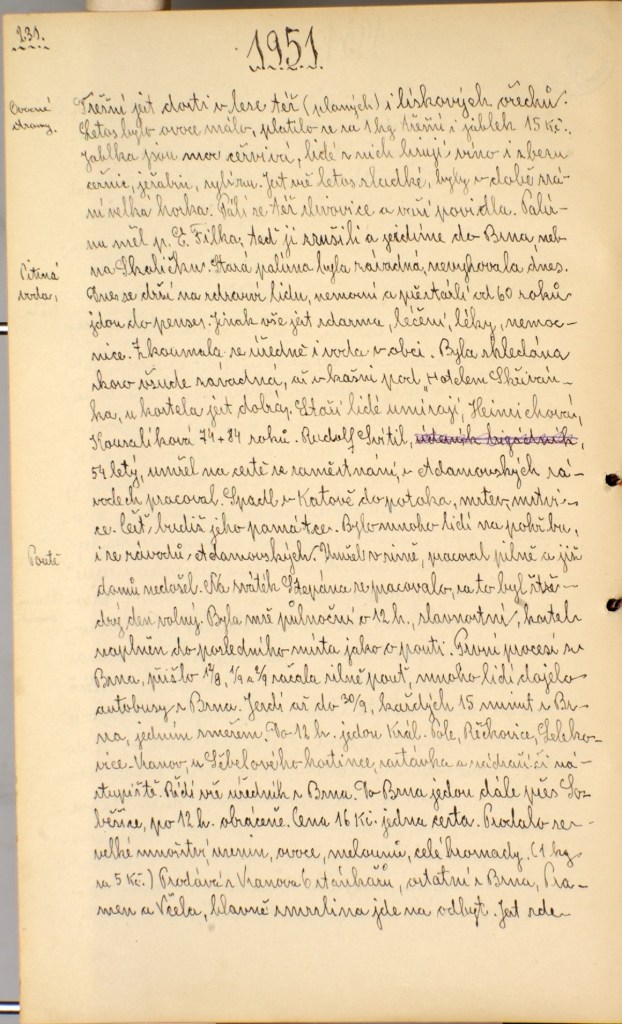 231.
1951
Ovocné
stromy.
Třešní jest dosti v lese též (planých) i lískových ořechů.
Letos bylo ovoce málo, platilo se za 1 kg třešní i jablek 15 Kč.
Jablka jsou moc červivá, lidé z nich hrují víno i z bezu
černic, jeřabin, rybízu. Jest mě letos sladké, byly v době zrá-
ní velka horka. Pálí se též slivovice a vaří povidla. Palír-
nu měl p. E. Filka, teď ji zrušili a jezdíme do Brna, neb
na Skaličku. Stará palírna byla závadná, nevyhovala dnes.
Pitná
voda,
Dnes se drží na zdraví lidu, nemocní a přestárlí od 60 roků
jdou do pense. Jinak vše jest zdarma, léčení, léky, nemoc-
nice. Zkoumala se úředně i voda v obci. Byla shledána
skoro všude závadná, až v kašni pod „Hotelem Skřiván-
ka, u kostela jest dobrá. Staří lidé umírají, Heinrichová,
Kousalíková 74 + 84 roků. Rudolf Svítil,
54 letý, umřel na cestě ze zaměstnání, v Adamovských zá-
vodech pracoval. Spadl v Katově do potoka, mrtev, mrtvi-
ce. Čest budiž jeho památce. Bylo mnoho lidí na pohřbu,
Poutě
i ze závodů Adamovských. Umřel v zimě, pracoval pilně a již
domů nedošel. Na svátek Štěpána se pracovalo, za to byl ště-
drý den volný. Byla mše půlnoční o 12 h., slavnostní, kostel
naplněn do posledního místa jako o pouti. První procesí z
Brna, přišlo 17/8, 1/9 a 2/9 začala silně pouť, mnoho lidí dojelo
autobusy z Brna. Jezdí až do 30/9, každých 15 minut z Br-
na, jedním směrem. Do 12 h. jedou Král. Pole, Řečkovice, Leleko-
vice Vranov, u Sčbelového hostince, zastávka a nádraží či ná-
stupiště. Řídí vše úředník z Brna. Do Brna jedou dále přes So-
běšice, po 12 h. obráceně. Cena 16 Kč. jedna cesta. Prodalo se
velké množství uzenin, ovoce, melounů, celé hromady. (1 kg
za 5 Kč.) Prodává z Vranova 6 stánkařů, ostatní z Brna, Pra-
men a Včela, hlavně zmrzlina jde na odbyt. Jest zde